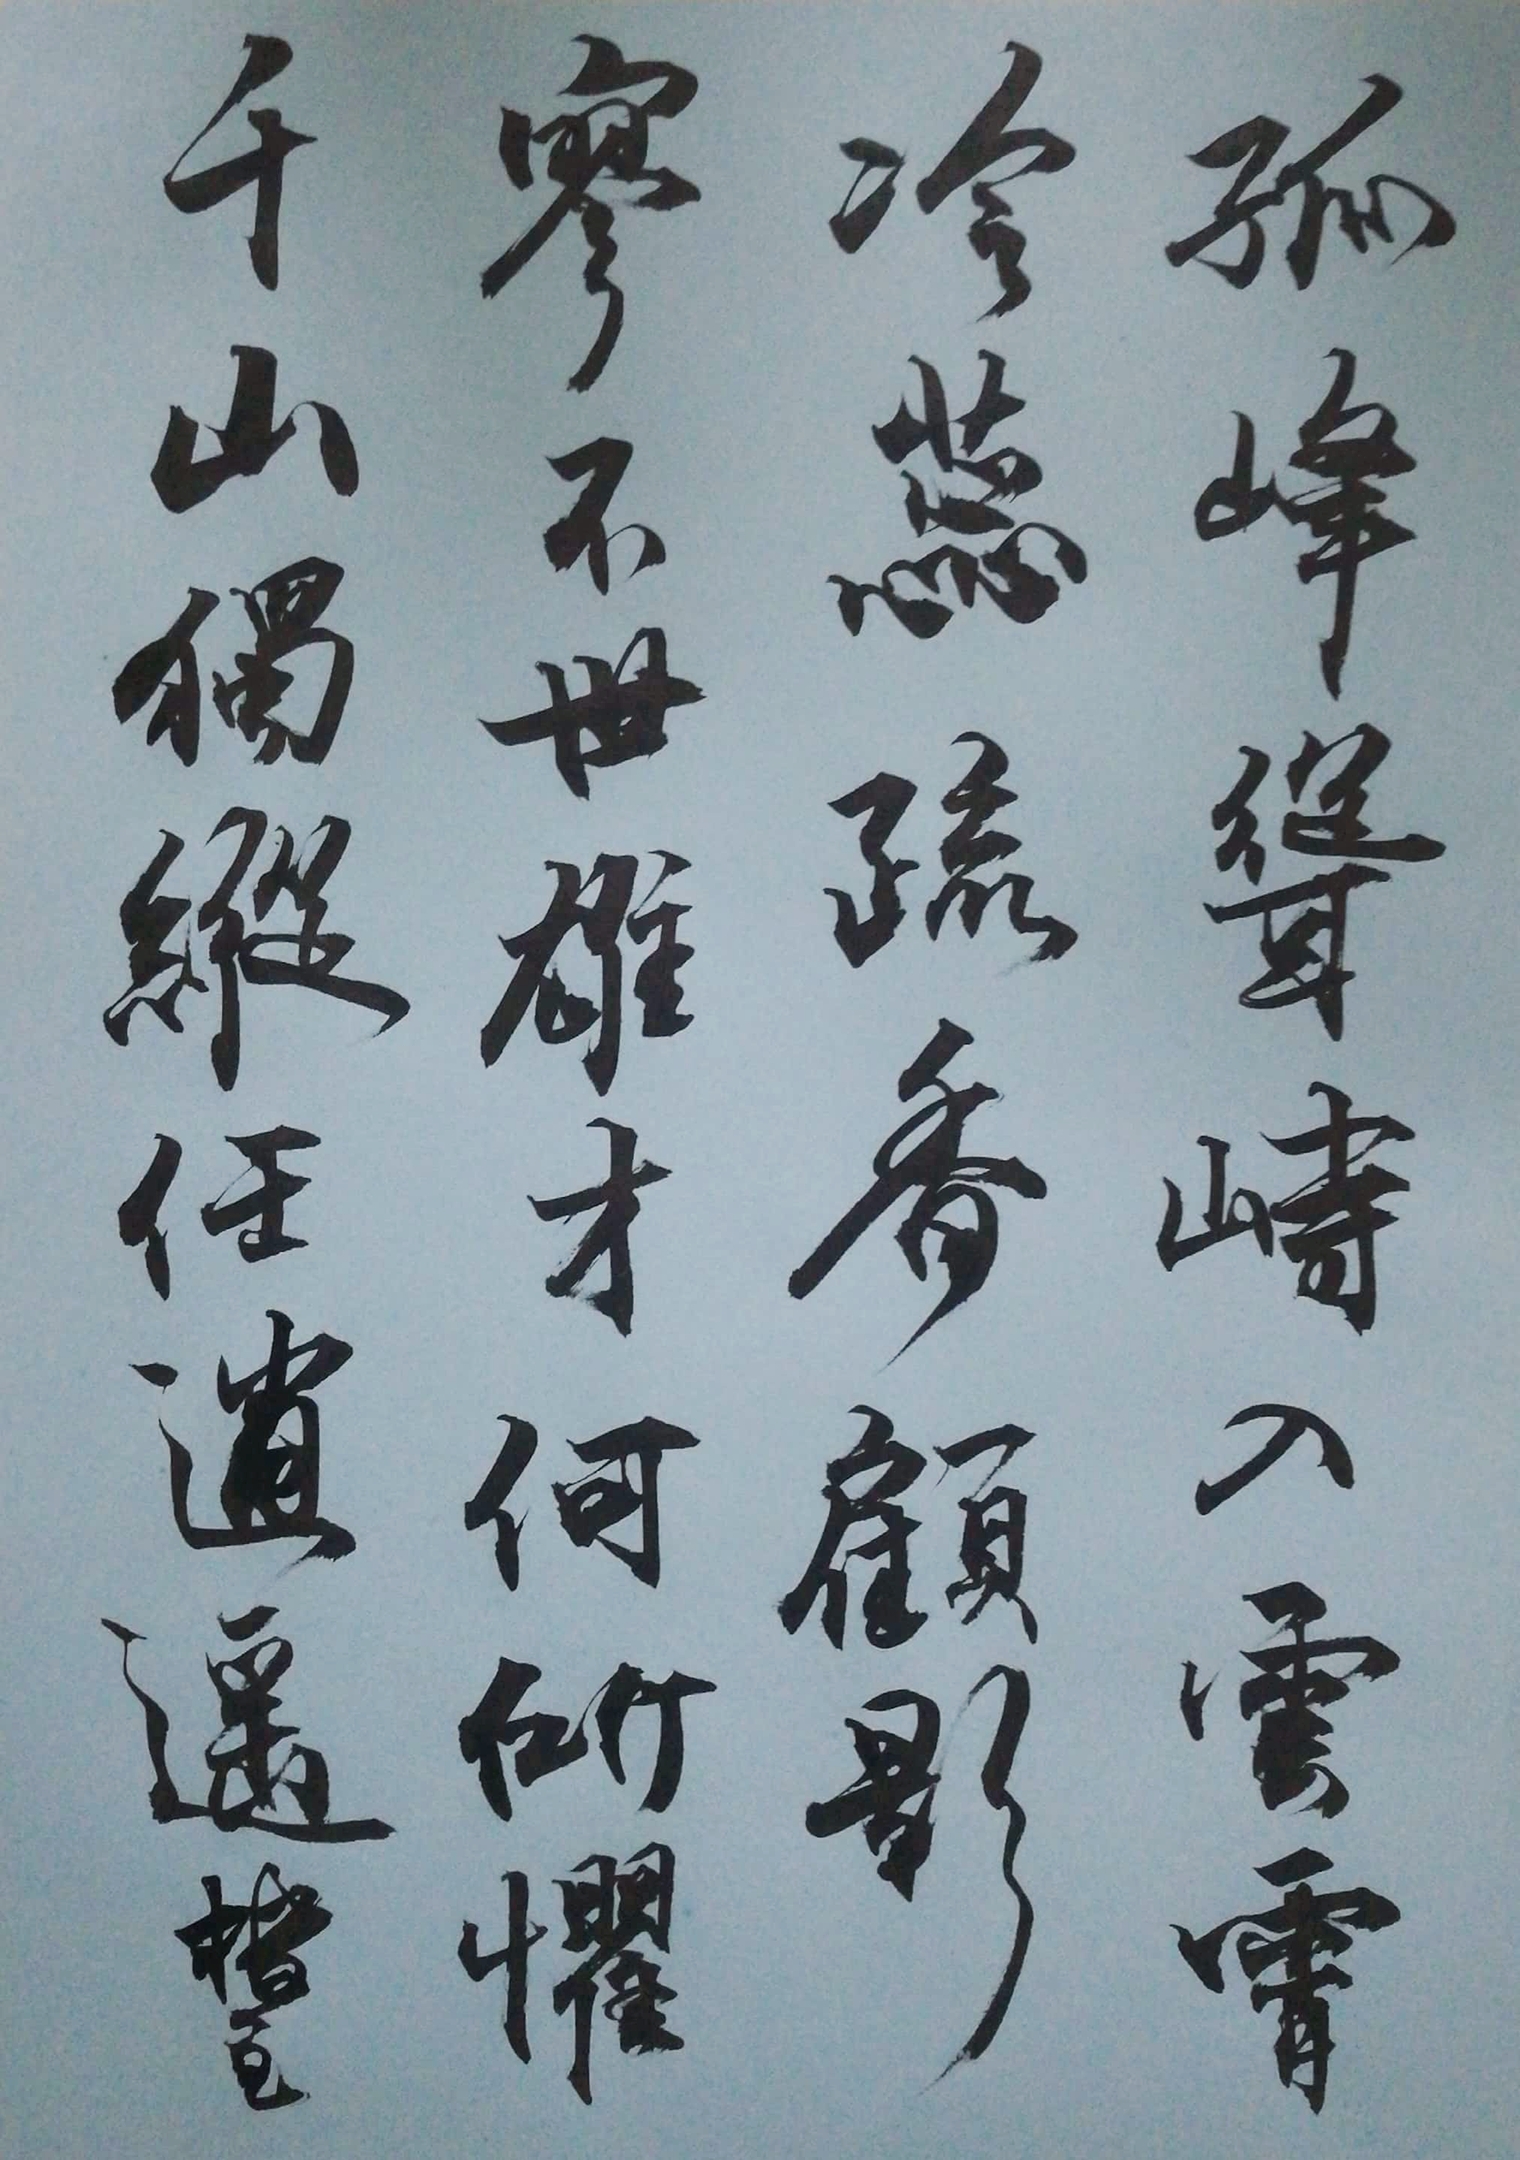 孤峰聳峙入雲霄
冷蕊疏香顧影
寥不世雄才何所懼
千山獨縱任逍遥